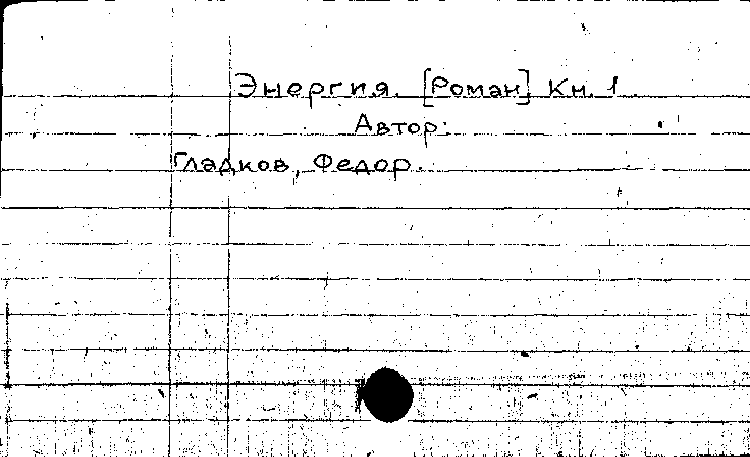 Энергия. [Роман] Кн. 1.
Автор:
Гладков, Федор.